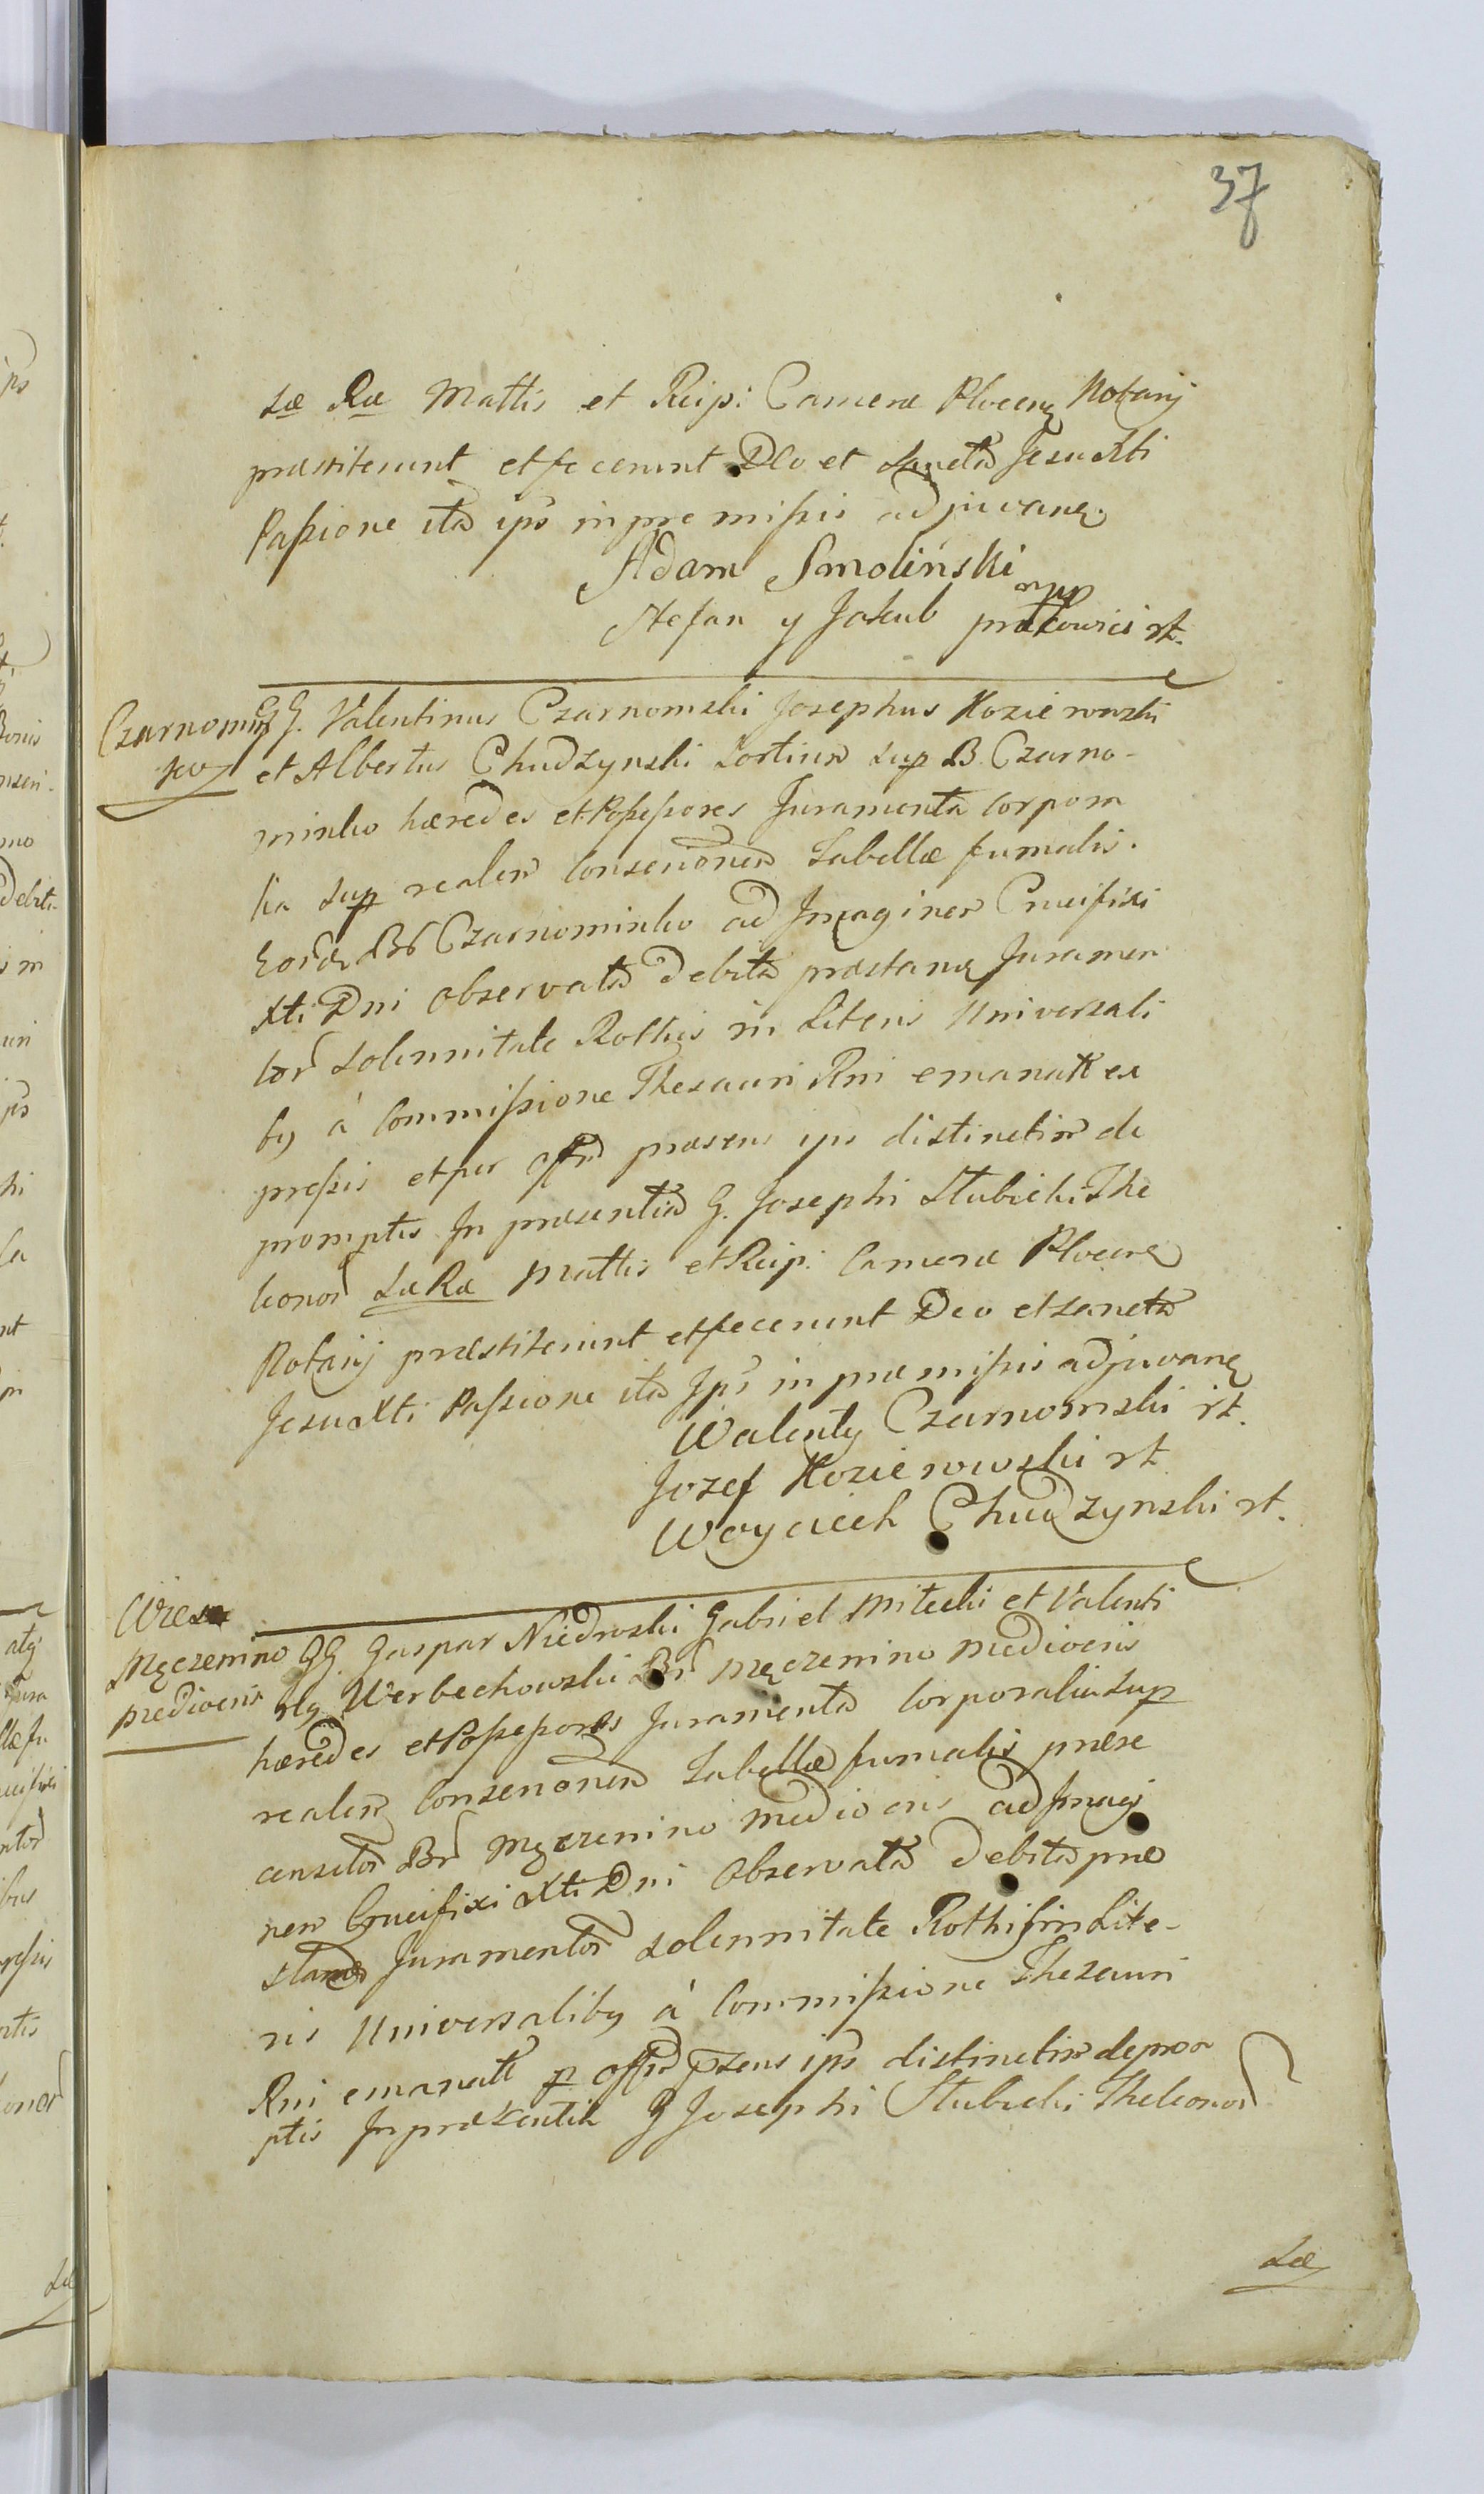 37
Læ Ræ Mattis et Reip: Cameræ Plocen Notarÿ
præstiterunt et fecerunt Deo et Sancta Jesu Xti
Passione ita ips in premissis adjuvan
Adam Smolinski
mpp
Stefan y Jakub rt.
Czarnomin
ko
GG. Valentinus Czarnomski Josephus Kozierowski
et Albertus Chudzynski Sortium sup B. Czarno-
minko hæredes et Possessores Juramenta Corpora
lia sup realem Conscrionem Tabellæ fumalis.
Eord Br Czarniominko ad Imaginem Crucifixi
Xti Dni observata debita præstan Juramen
tor Solennitate Rothis in Literis Universali
by à Commissione Thesauri Rni emanatt ex
pressis et per offm præsens ips distinctim de
promptis In præsentia G. Josephi Stubicki The
leonor Læ Ræ Mattis et Reip. Cameræ Plocen
Notarÿ præstiterunt et fecerunt Deo et Sancta
Jesu Xti Passione ita Ips in præmissis adjuvan
Walenty Czarnomski rt.
Jozef Kozierowski rt
Woyciech Chudzynski rt.
Męczenino
Mediocris
GG. Gaspar Niedroski Gabriel Mitecki et Valenti
ng Werbechowski Br Męczenino Mediocris
hæredes et Possessores Juramenta Corporalia Sup
realem Conscrionem Tabellæ fumalis præe
censitor Br Męczenino Mediocris ad Imagi
nem Crucifixi Xti Dni Observata debita præ
stand Juramentor Solennitate Rothis in Lite-
ris Universaliby à Commissione Thesauri
Rni emanatt p offm psens ips distinctim deprom
ptis In præsentia G Josephi Stubicki Theleonor
Læ